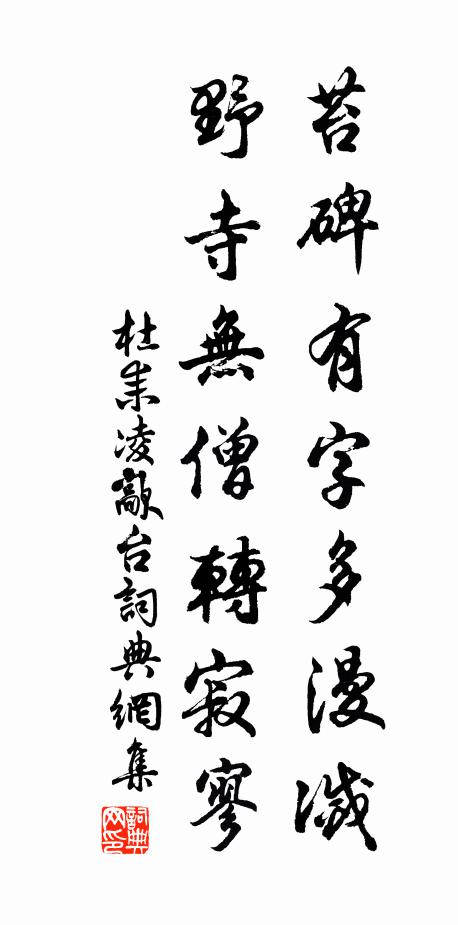 苔碑有字多漫滅
野寺無僧轉寂寥
杜耒凌歊台詞典網集
詞典网印